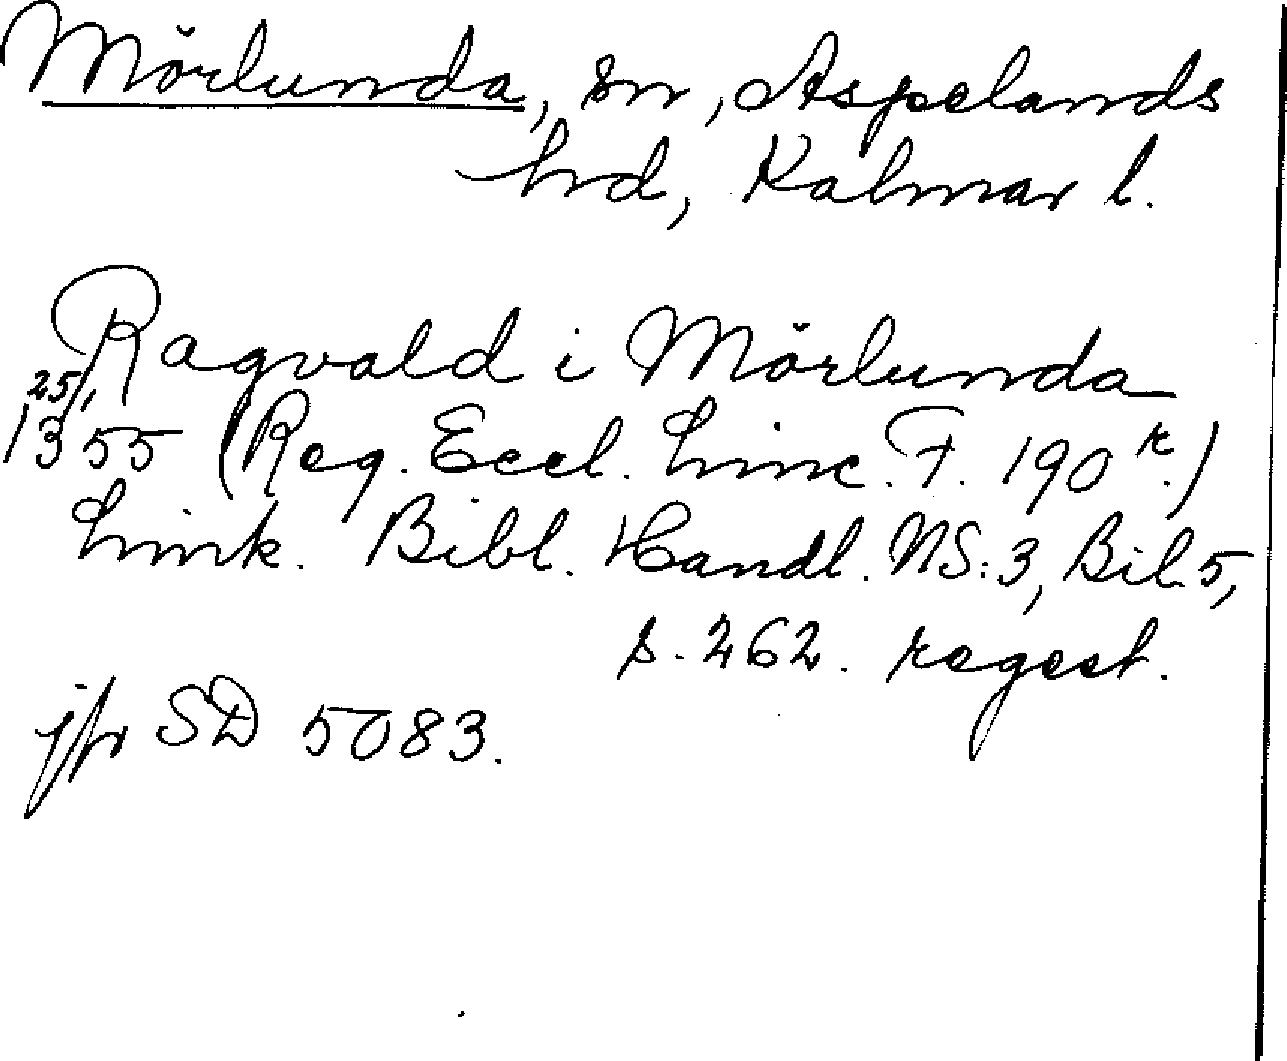 Mörlunda, sn, Aspelands
hd, Kalmar l.
Ragvald i Mörlunda
25/1
1355 (Reg. Eccl. Linc. F. 190 r.)
Link. Bibl. Handl. NS:3, Bil 5,
s. 262. regest.
jfr SD 5083.